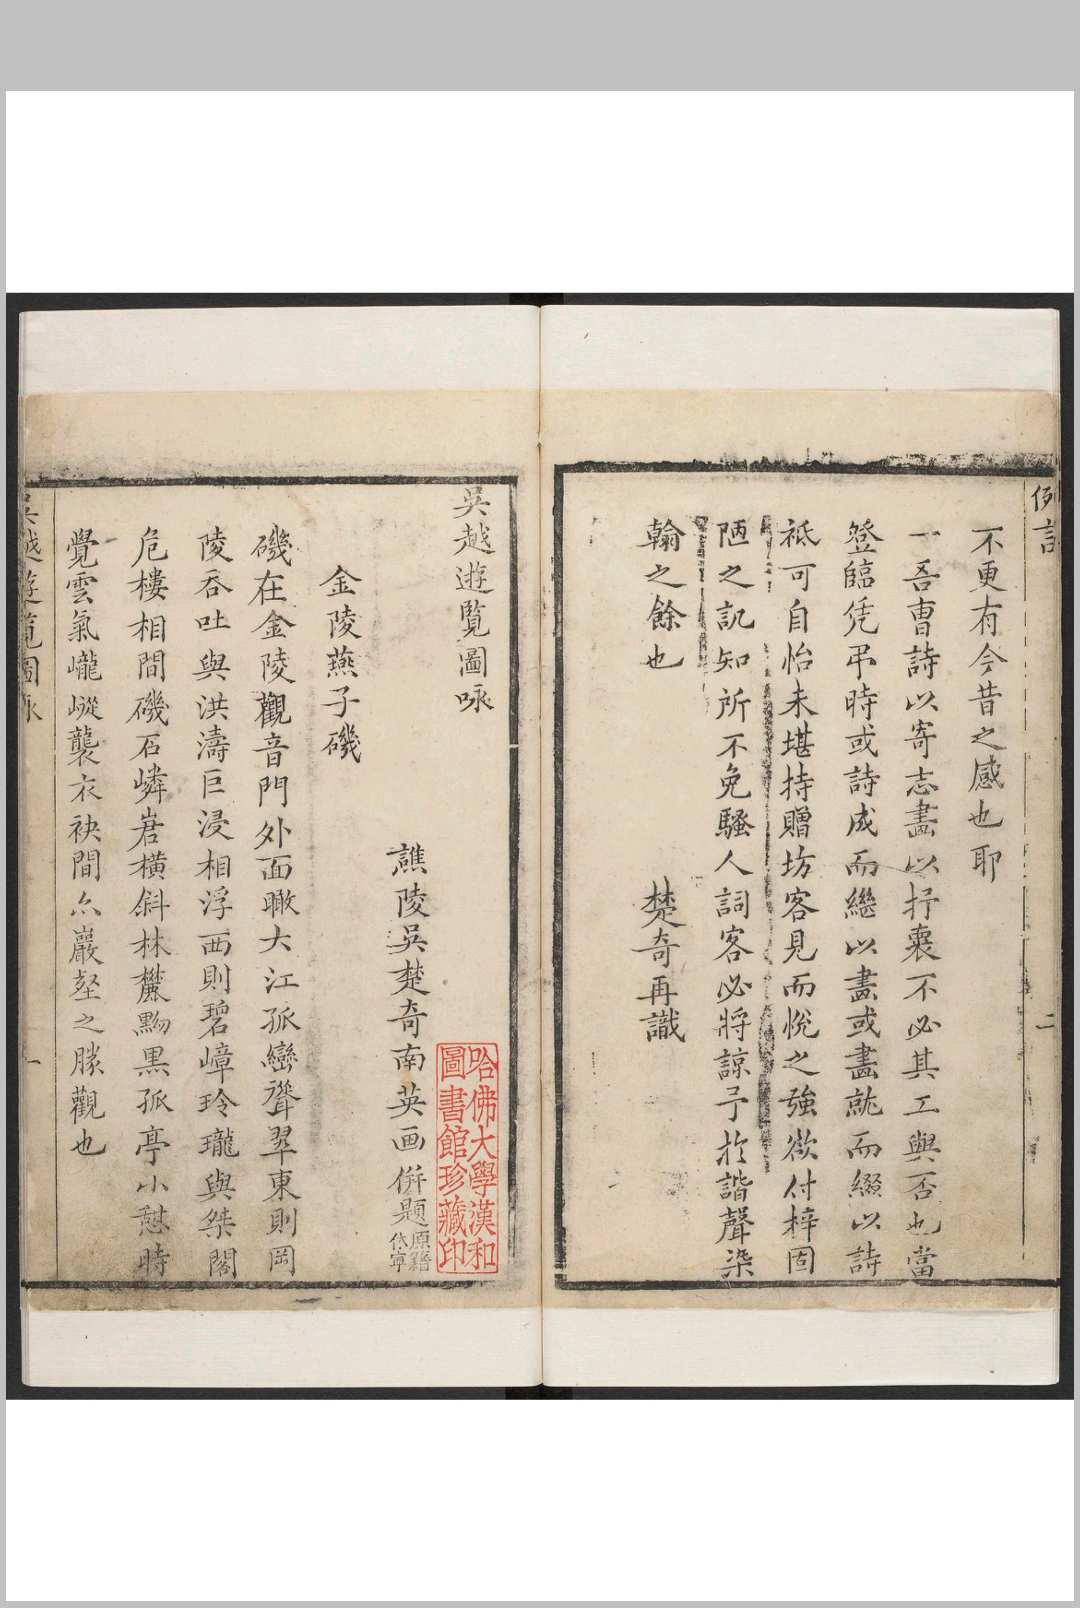 例言
二
不更有今昔之感也耶
一吾曹詩以寄志畵以抒褱不必其工與否也當
登臨凭弔時或詩成而繼以畵或畵就而綴以詩
祇可自怡未堪持贈坊客見而悅之強欲付梓固
陋之訊知所不免騷人詞客必將諒予於諧聲染
翰之餘也
楚奇再識
吳越遊覧圖咏
譙陵吳楚奇南英画併題原籍
休寧
哈佛大學漢和
圖書館珍藏印
金陵燕子磯
磯在金陵觀音門外面瞰大江孤巒聳翠東則岡
陵吞吐與洪濤巨浸相浮西則碧嶂玲瓏與桀閣
危樓相間磯石嶙峋橫斜林麓黝黑孤亭小憇時
覺雲氣巃嵸襲衣袂間亦巖壑之勝觀也
吳越遊覧圖咏
一